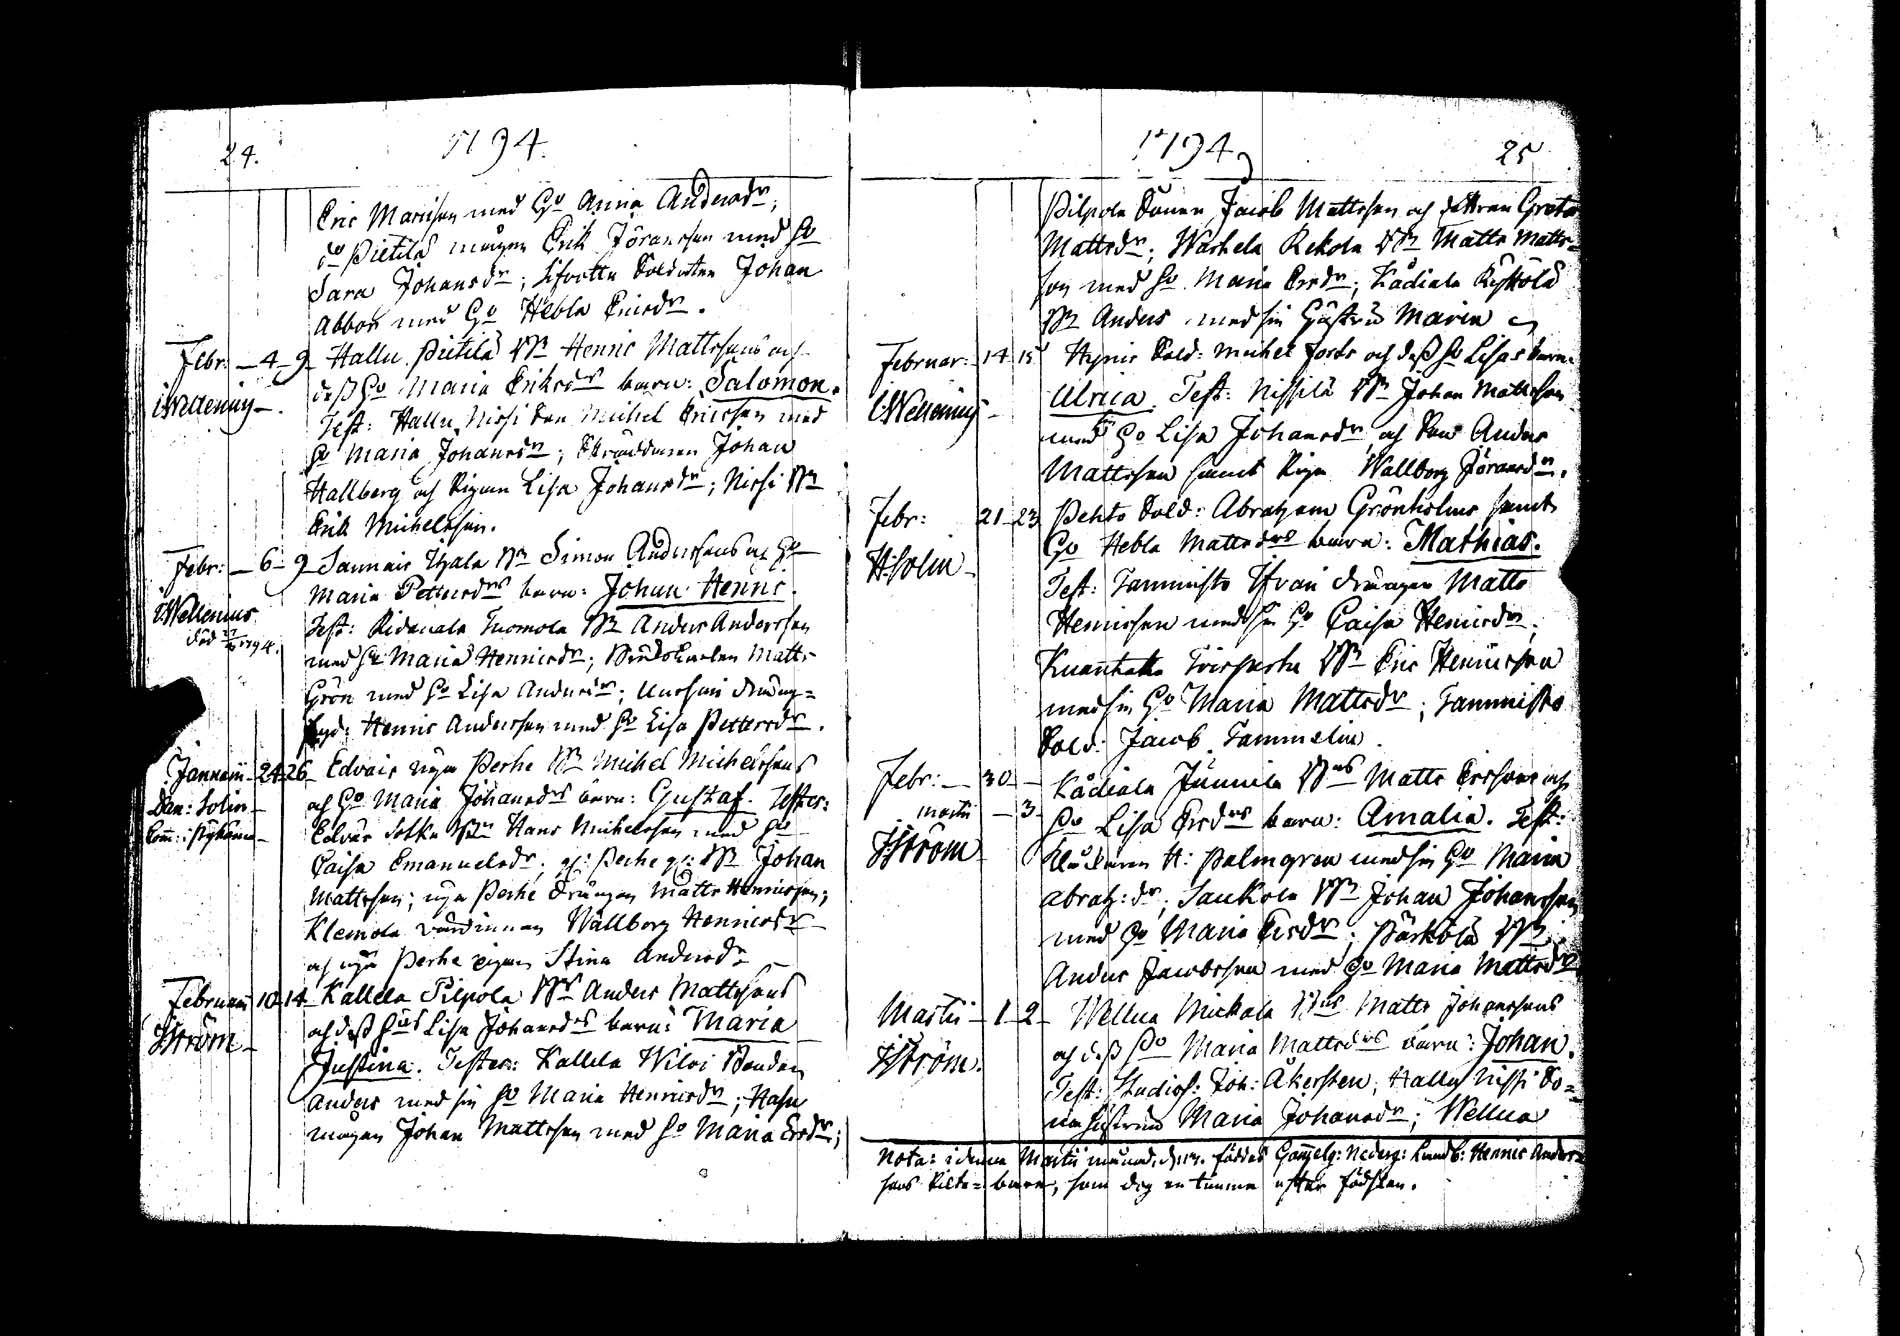 24. 1794.
Eric Mariisson med Ho Anna Andersdr;
do Pietilä mågen Erik Jöransson med Ho
Sara Johansdr; Soldaten Johan
Abbor med Ho Hebla Ericsdr.
Febr: 4 9 Hallu Pietilä Bn Henric Mattssons och
Wellenius dess Ho Maria Eriksdrs barn: Salomon.
Test: Hallu Nissi Son Michel Ericsson med
Ho Maria Johansdr; Skräddaren Johan
Hallberg och Pigan Lisa Johansdr; Nissi Bn
Erik Michelsson.
Febr: 6 9 Sannais Ihala Bn Simon Anderssons och Ho
Maria Pettersdrs barn: Johan Henric.
Wellenius Test: Ridanala Tuomola Bn Anders Andersson
död 1794. med Ho Maria Henricsdr; Matts
Grön med Ho Lisa Andersdr;
Henric Andersson med Ho Lisa Pettersdr.
Januarii 24 26 Edvais nya Perhe Bn Michel Michelssons
Dan: Solin och Ho Maria Johansdrs barn: Gustaf. Testes:
Sokka Bn Hans Michelsson med Ho
Caisa Emanuelsdr; Perhe Bn Johan
Mattsson; nya Perhe drängen Matts Henricsson;
Klemola värdinnan Wallborg Henricsdr
och nya Perhe pigan Stina Andersdr
Februarii 10 14 Kallela Pilpola Bn Anders Mattssons
och dess Hus Lisa Johansdrs barn: Maria
JStröm
Justina. Testes: Kallela Wilvi Bonden
Anders med sin Ho Maria Henricsdr;
mågen Johan Mattsson med Ho Maria Ersdr;
1794 25
Pilpola Sonen Jacob Mattsson och dottren Greta
Mattsdr; Warhela Rekola Bn Matts Matts-
son med Ho Maria Ersdr; Kådiala
Bn Anders med sin Hustru Maria
Februar: 14 15 Sold: Michel Fors och dess Ho Lisas barn
Wellenius Ulrica. Test: Nissilä Bn Johan Mattsson
med Ho Lisa Johansdr, och Son Anders
Mattsson samt Pigan Wallborg Jöransdr.
Febr: 21 23 Pehto Sold: Abraham Grönholms samt
Ho Hebla Mattsdrs barn: Mathias.
H:Solin
Test: Tammisto drängen Matts
Henricsson med sin Ho Caisa Henricsdr;
Kuanhatta Bn Eric Henricsson
med sin Ho Maria Mattsdr; Tammisto
Sold: Jacob Tammelin.
Febr: 30 Kådiala Junnila Bns Matts Erssons och
Martii 3 Ho Lisa Ersdrs barn: Amalia. Test:
JStröm Klockaren H: Palmgren med sin Ho Maria
Abrah:dr; Saukola Bn Johan Johansson
med Ho Maria Ersdr; Pärkölä Bn
Anders Jacobsson med Ho Maria Mattsdr
Martii 1 2 Wellua Mickola Bns Matts Johanssons
och dess Ho Maria Mattsdrs barn: Johan.
JStröm. Test: Studios: Joh: Åkersten; Hallu Nissi So-
nehustrun Maria Johansdr; Wellua
Nota: i denna Martii månad föddes Gam̄elg: Nederg: Landb: Henric Anders-
sons Piltebarn, som dog en timma efter födslen.